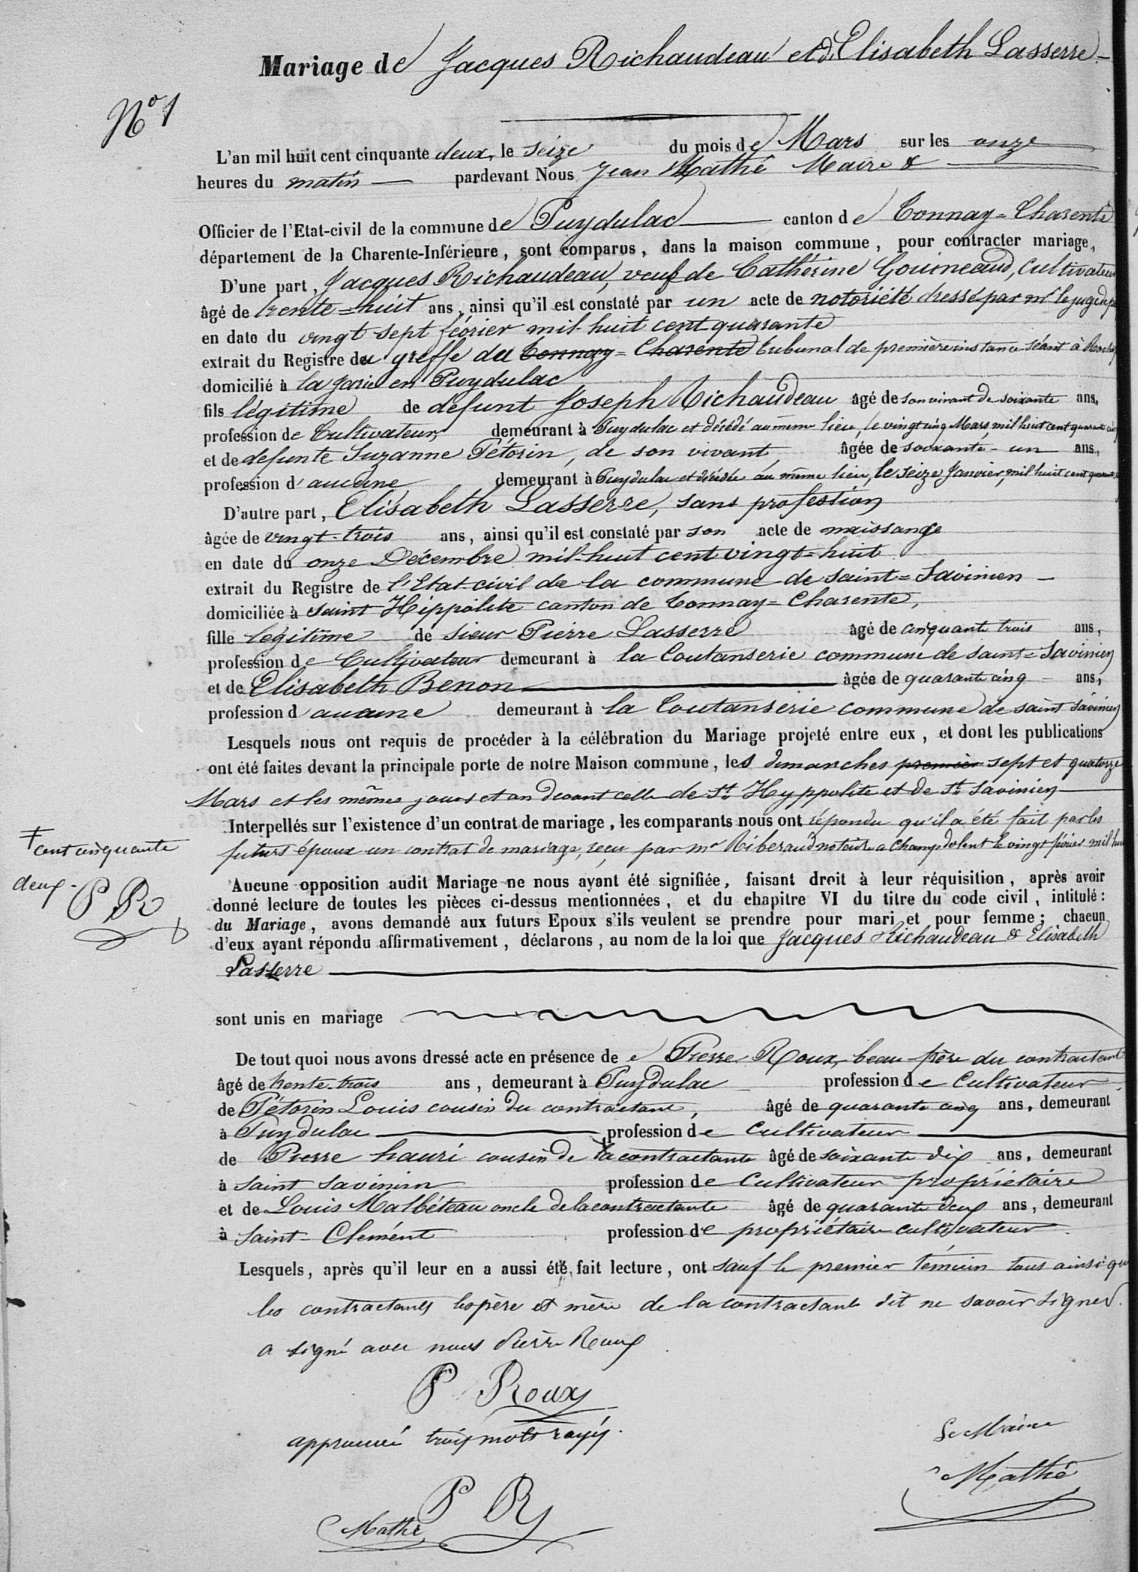 Mariage de Jacques Richaudeau et d'Elisabeth Lasserre
N° 1
L'an mil huit cent cinquante deux, le seize du mois de Mars sur les onze
heures du matin pardevant Nous Jean Mathé Maire &
Officier de l'Etat-civil de la commune de Puydulac canton de Tonnay-Charente
département de la Charente-Inférieure, sont comparus, dans la maison commune, pour contracter mariage,
D'une part, Jacques Richaudeau, veuf de Cathérine Gouineaud, cultivateur
âgé de trente-huit ans, ainsi qu'il est constaté par un acte de notoriété dressé par mr le juge de
en date du vingt sept février mil huit cent quarante
extrait du Registre du greffe du Tonnay-Charente tribunal de première instance séant à
domicilié à la Jarie en Puydulac
fils légitime de défunt Joseph Richaudeau âgé de son vivant de soixante ans,
profession de Cultivateur, demeurant à Puydulac et décédé au même lieu, le vingt cinq Mars, mil huit cent quarante cinq
et de défunte Suzanne Pétorin, de son vivant, âgée de soixante-un ans,
profession d'aucune demeurant à Puydulac et décédée au même lieu, le seize Janvier, mil huit cent
D'autre part, Elisabeth Lasserre, sans profession
âgée de vingt-trois ans, ainsi qu'il est constaté par son acte de naissance
en date du onze Décembre mil-huit cent vingt-huit
extrait du Registre de l'Etat-civil de la commune de saint-Savinien
domiciliée à saint Hippolite canton de Tonnay-Charente,
fille légitime de sieur Pierre Lasserre âgé de cinquante trois ans,
profession de Cultivateur demeurant à la Coutanserie commune de saint-Savinien
et de Elisabeth Benon âgée de quarante cinq ans,
profession d'aucune demeurant à la Coutanserie commune de saint Savinien
Lesquels nous ont requis de procéder à la célébration du Mariage projeté entre eux, et dont les publications
ont été faites devant la principale porte de notre Maison commune, les dimanches premier sept et quatorze
Mars et les mêmes jours et an devant celle de St Hyppolite et de St Savinien
Interpellés sur l'existence d'un contrat de mariage, les comparants nous ont répondu qu'il a été fait par les
futurs époux un contrat de mariage, reçu par mr Riberaud notaire a Champdolent le vingt février mil huit
cent cinquante
deux.
P R
Aucune opposition audit Mariage ne nous ayant été signifiée, faisant droit à leur réquisition, après avoir
donné lecture de toutes les pièces ci-dessus mentionnées, et du chapitre VI du titre du code civil, intitulé:
du Mariage, avons demandé aux futurs Epoux s'ils veulent se prendre pour mari et pour femme; chacun
d'eux ayant répondu affirmativement, déclarons, au nom de la loi que Jacques Richaudeau & Elisabeth
Lasserre
sont unis en mariage
De tout quoi nous avons dressé acte en présence de Pierre Roux, beau-frère du contractant
âgé de trente-trois ans, demeurant à Puydulac profession de Cultivateur
de Pétorin Louis cousin du contractant, âgé de quarante cinq ans, demeurant
à Puydulac profession de Cultivateur
de Pierre hauri cousin de la contractante âgé de soixante dix ans, demeurant
à saint savinien profession de Cultivateur propriétaire
et de Louis Malbéteau oncle de la contractante âgé de quarante deux ans, demeurant
à saint-Clément profession de propriétaire cultivateur
Lesquels, après qu'il leur en a aussi été fait lecture, ont sauf le premier témoin tous ainsi que
les contractants les père et mère de la contractante dit ne savoir signer.
a signé avec nous Pierre Roux
P Roux
approuvé trois mots rayés.
Le Maire
Mathé
P R
Mathé